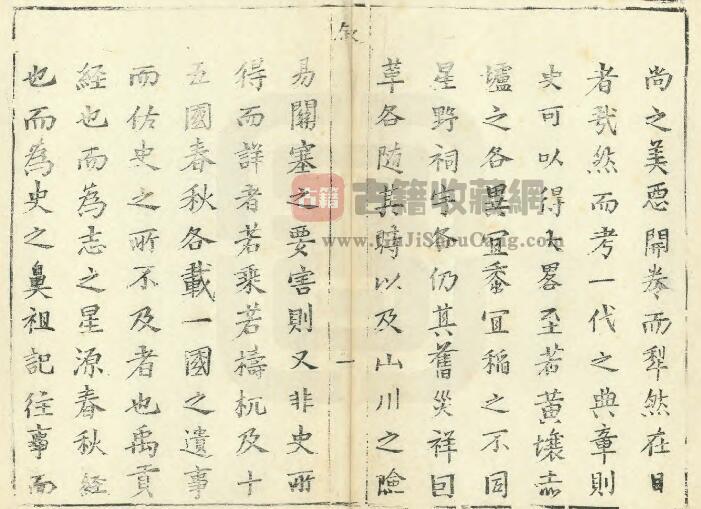 尚之美惡開卷而犁然在目
者哉然而考一代之典章則
史可以得大畧至若黃壤赤
壚之各異宜黍宜稻之不同
星野祠宇各仍其舊災祥囙
革各隨其時以及山川之險
敘
一
易關塞之要害則又非史所
得而詳者若乘若檮杌及十
五國春秋各載一國之遺事
而佐史之所不及者也禹貢
經也而為志之星源春秋經
也而為史之鼻祖記往事而
古籍
古籍收藏網
www.GuJiShouCang.com